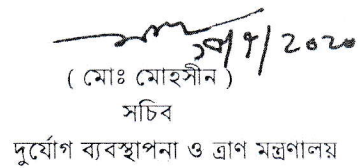 ( মোঃ মোহসীন )
সচিব
দুর্যোগ ব্যবস্থাপনা ও ত্রাণ মন্ত্রণালয়